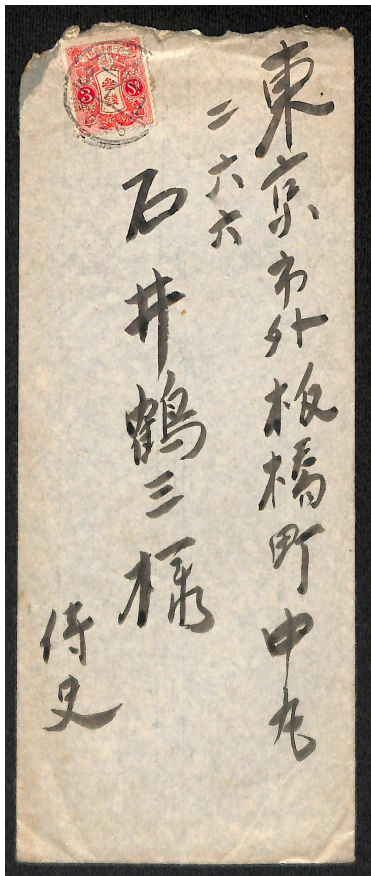 東京市外板橋町中丸
二六六
石井鶴三様
侍史
3 3